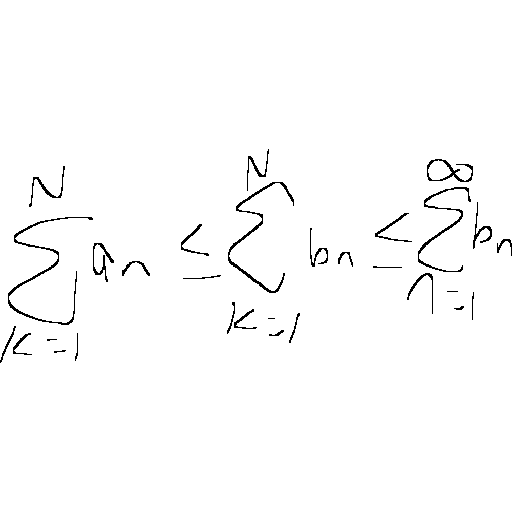 \sum_{k=1}^{N} a_n \leq \sum_{k=1}^{N} b_n \leq \sum_{n=1}^{\infty} b_n